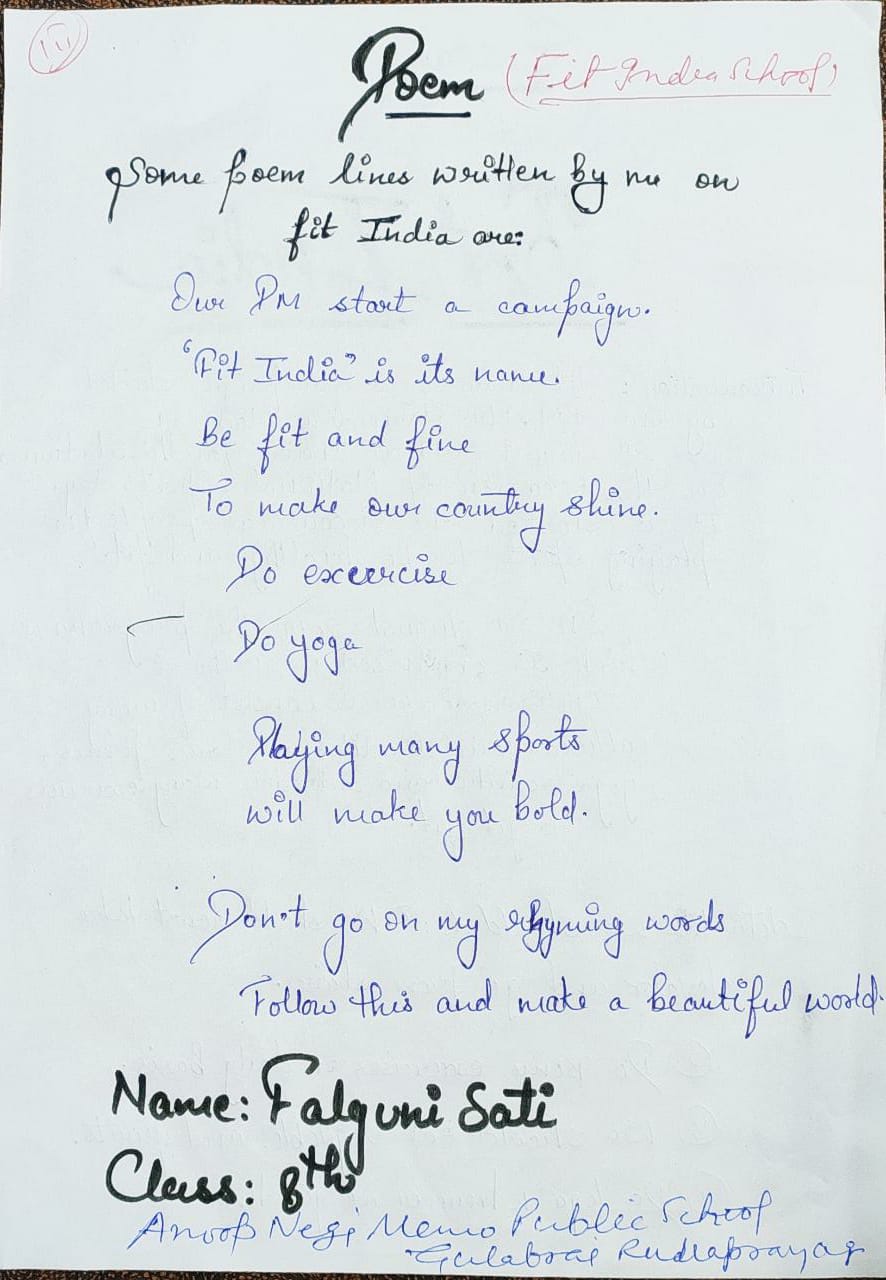 Poem (Fit India School)
Some poem lines written by me on
fit India are:
Our PM start a campaign.
"Fit India" is its name.
Be fit and fine
To make our country shine.
Do excercise
Do yoga
Playing many sports
will make you bold.
Don't go on my rhyming words
Follow this and make a beautiful world.
Name: Falguni Sati
Class: 8th
Anoop Negi Memo Public School
Gulabrai Rudraprayag